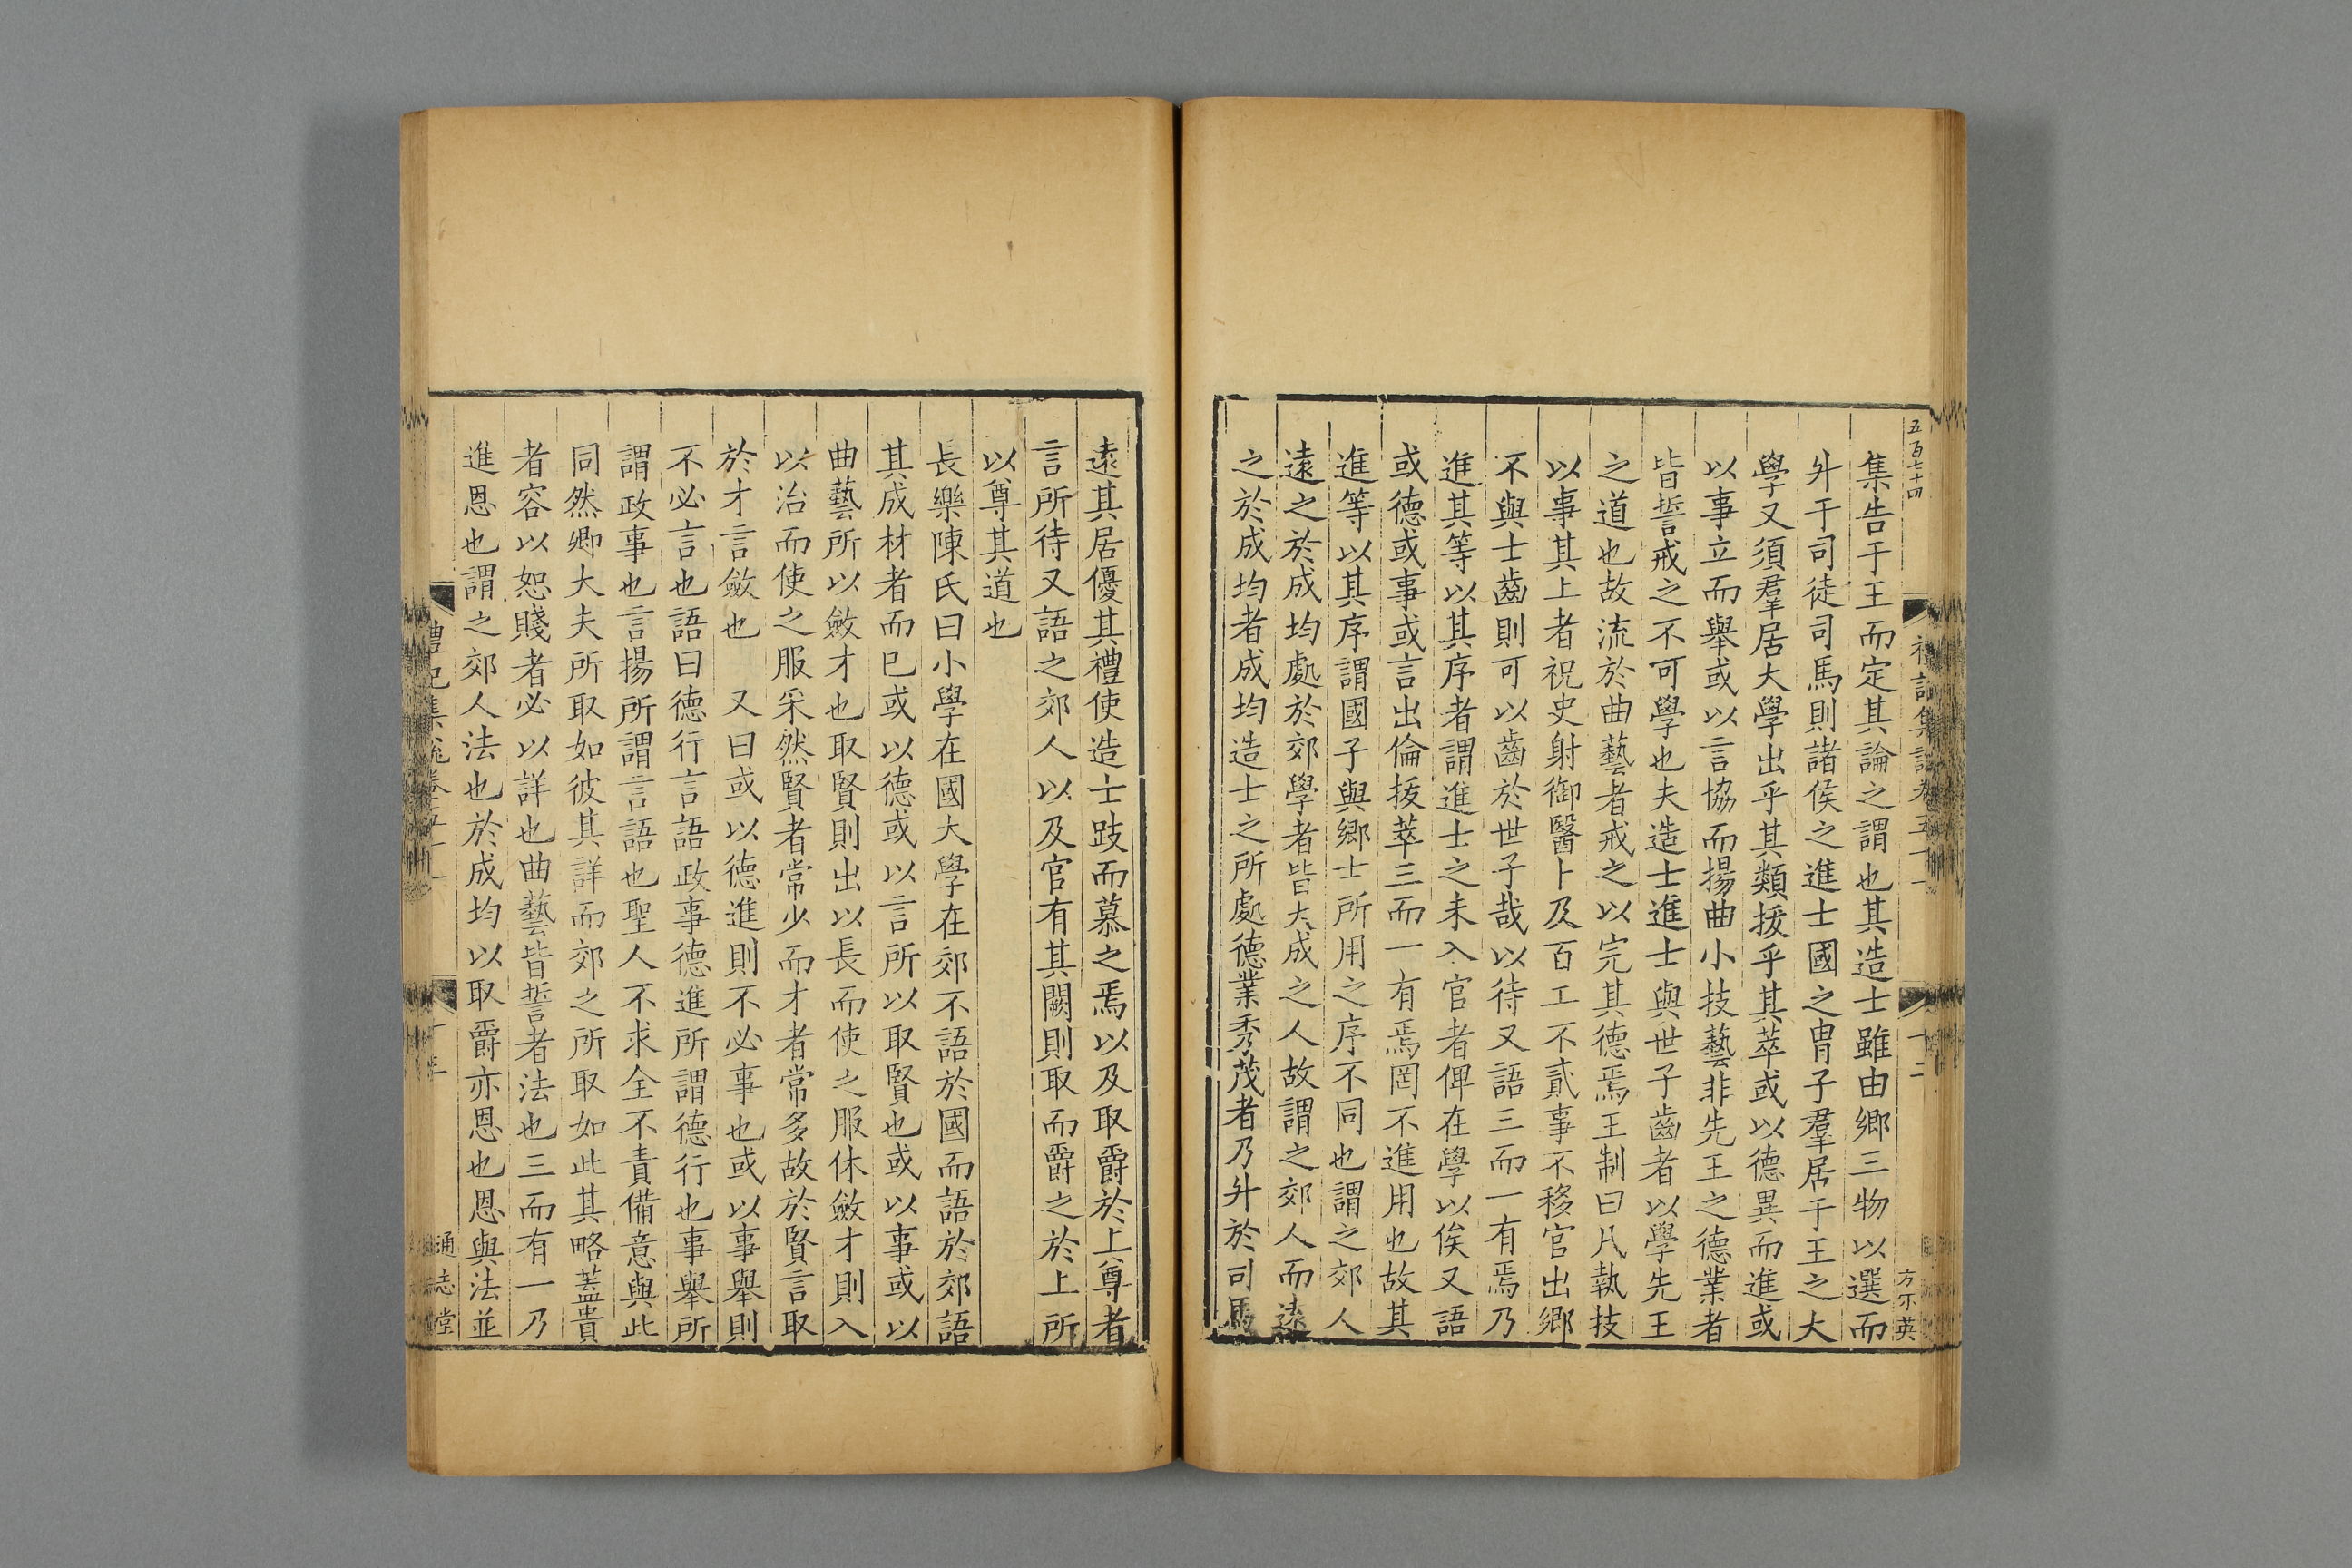 五百七十四
十二
方不英
集告于王而定其論之謂也其造士雖由鄉三物以選而
升于司徒司馬則諸侯之進士國之胄子羣居于王之大
學又須羣居大學出乎其類拔乎其萃或以德異而進或
以事立而舉或以言協而揚曲小技藝非先王之德業者
皆誓戒之不可學也夫造士進士與世子齒者以學先王
之道也故流於曲藝者戒之以完其德焉王制曰凡執技
以事其上者祝史射御醫卜及百工不貳事不移官出鄉
不與士齒則可以齒於世子哉以待又語三而一有焉乃
進其等以其序者謂進士之未入官者俾在學以俟又語
或德或事或言出倫拔萃三而一有焉罔不進用也故其
進等以其序謂國子與鄉士所用之序不同也謂之郊人
遠之於成均處於郊學者皆大成之人故謂之郊人而遠
之於成均者成均造士之所處德業秀茂者乃升於司馬
遠其居優其禮使造士跂而慕之焉以及取爵於上尊者
言所待又語之郊人以及官有其闕則取而爵之於上所
以尊其道也
長樂陳氏曰小學在國大學在郊不語於國而語於郊語
其成材者而已或以德或以言所以取賢也或以事或以
曲藝所以斂才也取賢則出以長而使之服休斂才則入
以治而使之服采然賢者常少而才者常多故於賢言取
於才言斂也　又曰或以德進則不必事也或以事舉則
不必言也語曰德行言語政事德進所謂德行也事舉所
謂政事也言揚所謂言語也聖人不求全不責備意與此
同然鄉大夫所取如彼其詳而郊之所取如此其略蓋貴
者容以恕賤者必以詳也曲藝皆誓者法也三而有一乃
進恩也謂之郊人法也於成均以取爵亦恩也恩與法並
通志堂